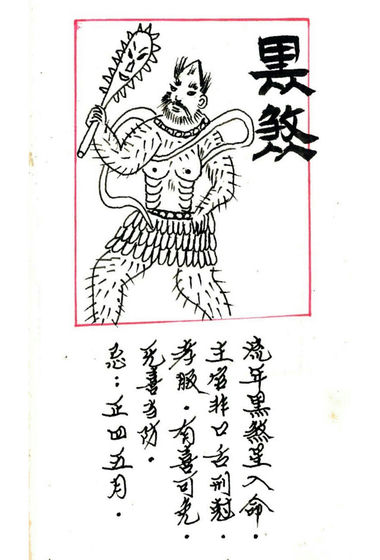 黑煞
流年黑煞星入命.
主官非口舌刑懟.
孝服.有喜可免.
无喜当防.
忌:正四五月.